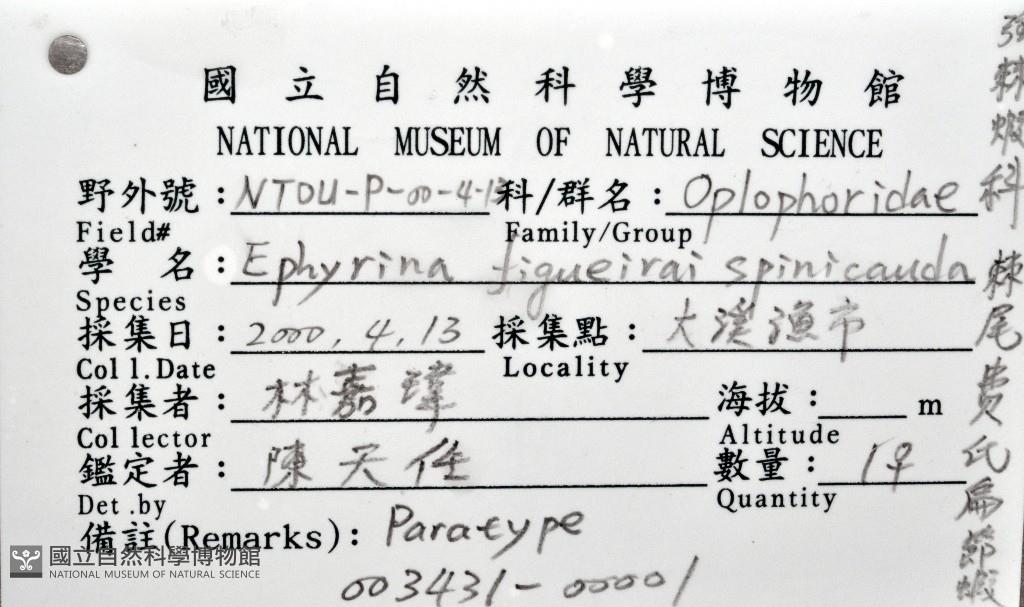 國立自然科學博物館
NATIONAL MUSEUM OF NATURAL SCIENCE
野外號：NTOU-P-00-4-13 科/群名：Oplophoridae
Field# Family/Group
學 名：Ephyrina figueirai spinicauda
Species
採集日：2000.4.13 採集點：大溪漁市
Coll.Date Locality
採集者：林嘉瑋 海拔：____m
Collector Altitude
鑑定者：陳天任 數量：1♀
Det.by Quantity
備註(Remarks)：Paratype
003431-00001
強棘蝦科 棘尾費氏扁節蝦
國立自然科學博物館
NATIONAL MUSEUM OF NATURAL SCIENCE